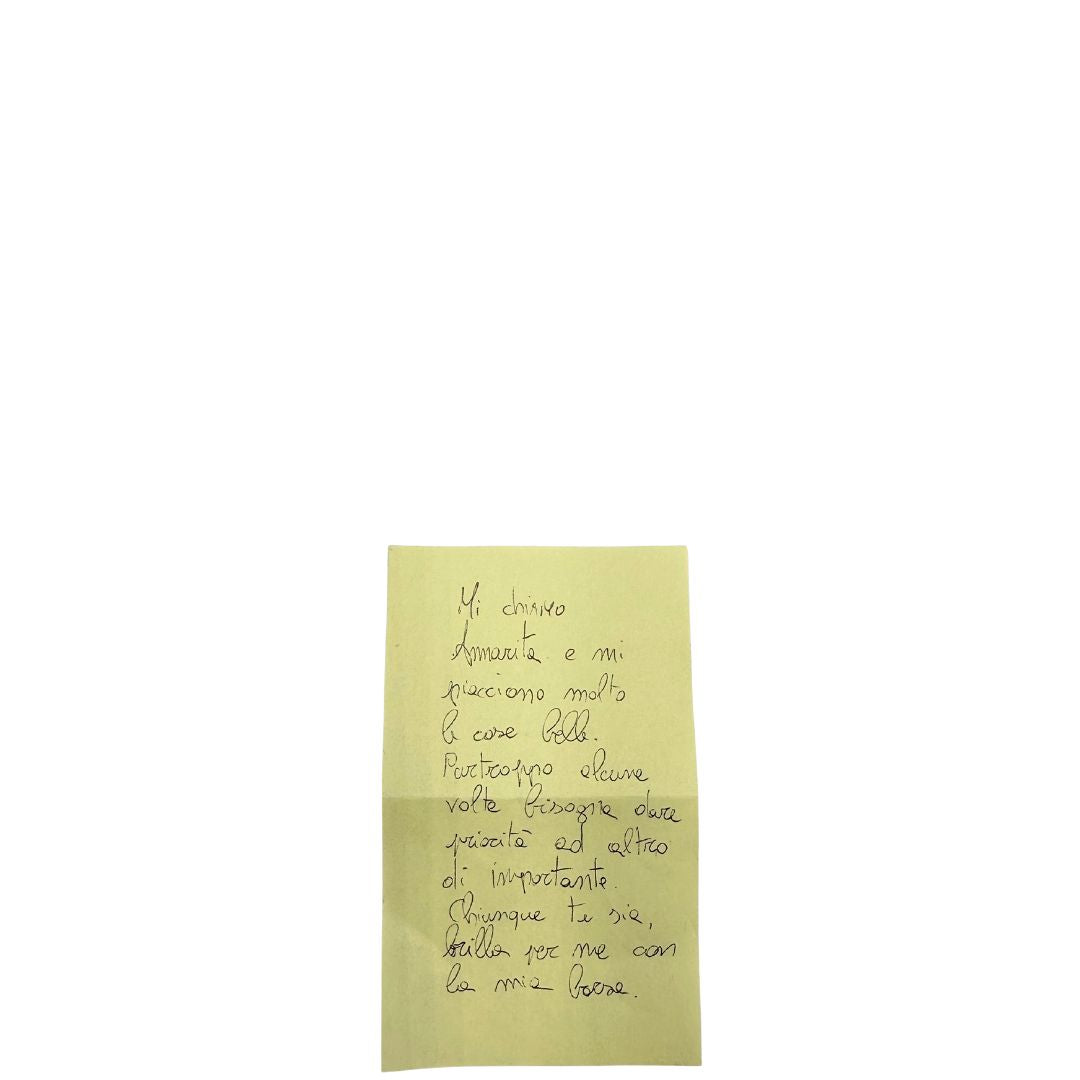 Mi chiamo
Annarita e mi
piacciono molto
le cose belle.
Purtroppo alcune
volte bisogna dare
priorità ad altro
di importante.
Chiunque tu sia,
brilla per me con
la mia borsa.